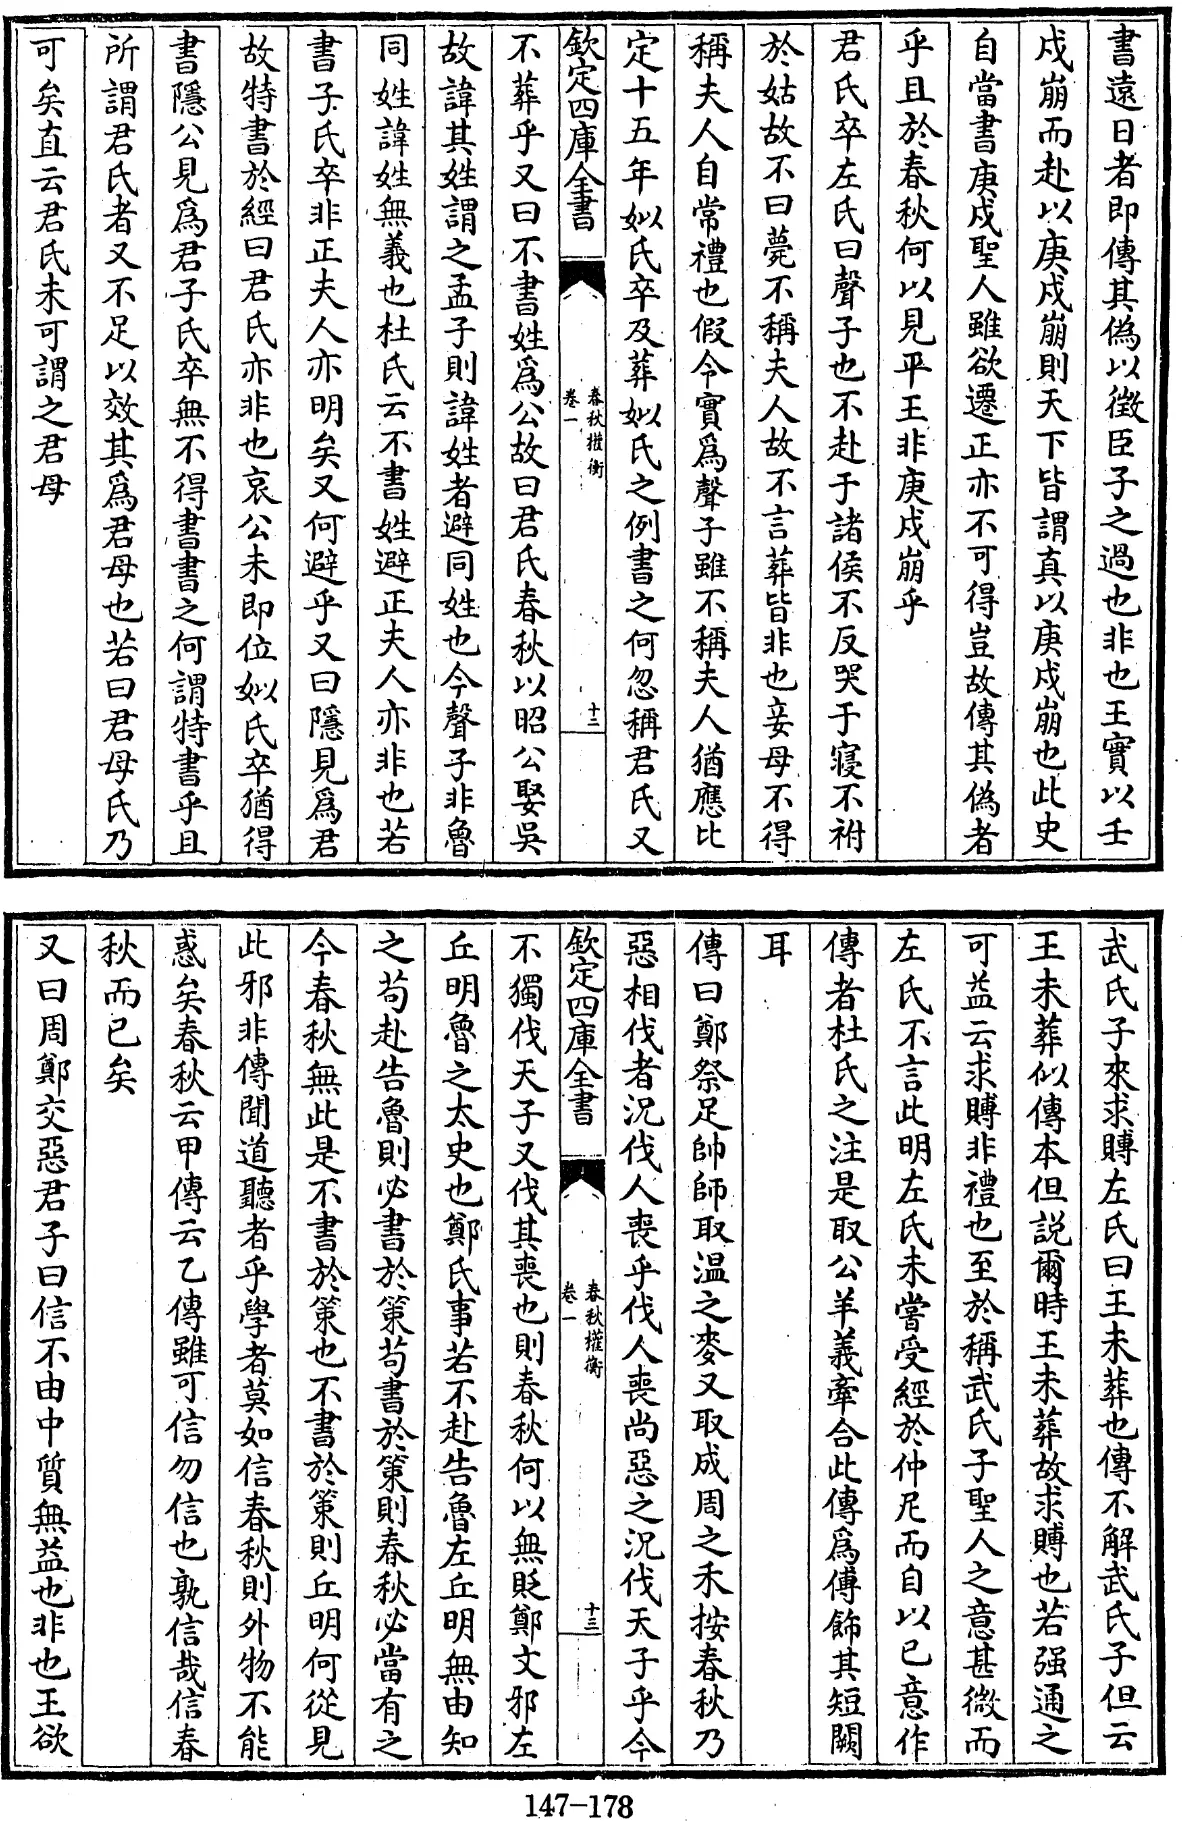 書遠日者即傳其偽以徵臣子之過也非也王實以壬
戍崩而赴以庚戍崩則天下皆謂真以庚戍崩也此史
自當書庚戍聖人雖欲遷正亦不可得豈故傳其偽者
乎且於春秋何以見平王非庚戍崩乎
君氏卒左氏曰聲子也不赴于諸侯不反哭于寢不祔
於姑故不曰薨不稱夫人故不言葬皆非也妾母不得
稱夫人自常禮也假令實爲聲子雖不稱夫人猶應比
定十五年姒氏卒及葬姒氏之例書之何忽稱君氏又
欽定四庫全書
春秋權衡
卷一
十二
不葬乎又曰不書姓爲公故曰君氏春秋以昭公娶吳
故諱其姓謂之孟子則諱姓者避同姓也今聲子非魯
同姓諱姓無義也杜氏云不書姓避正夫人亦非也若
書子氏卒非正夫人亦明矣又何避乎又曰隱見爲君
故特書於經曰君氏亦非也哀公未即位姒氏卒猶得
書隱公見爲君子氏卒無不得書書之何謂特書乎且
所謂君氏者又不足以效其爲君母也若曰君母氏乃
可矣直云君氏未可謂之君母
武氏子來求賻左氏曰王未葬也傳不解武氏子但云
王未葬似傳本但説爾時王未葬故求賻也若强通之
可益云求賻非禮也至於稱武氏子聖人之意甚微而
左氏不言此明左氏未嘗受經於仲尼而自以已意作
傳者杜氏之注是取公羊義牽合此傳爲傅飾其短闕
耳
傳曰鄭祭足帥師取温之麥又取成周之禾按春秋乃
惡相伐者況伐人喪乎伐人喪尚惡之況伐天子乎今
欽定四庫全書
春秋權衡
卷一
十三
不獨伐天子又伐其喪也則春秋何以無貶鄭文邪左
丘明魯之太史也鄭氏事若不赴告魯左丘明無由知
之苟赴告魯則必書於策苟書於策則春秋必當有之
今春秋無此是不書於策也不書於策則丘明何從見
此邪非傳聞道聽者乎學者莫如信春秋則外物不能
惑矣春秋云甲傳云乙傳雖可信勿信也孰信哉信春
秋而已矣
又曰周鄭交惡君子曰信不由中質無益也非也王欲
147-178